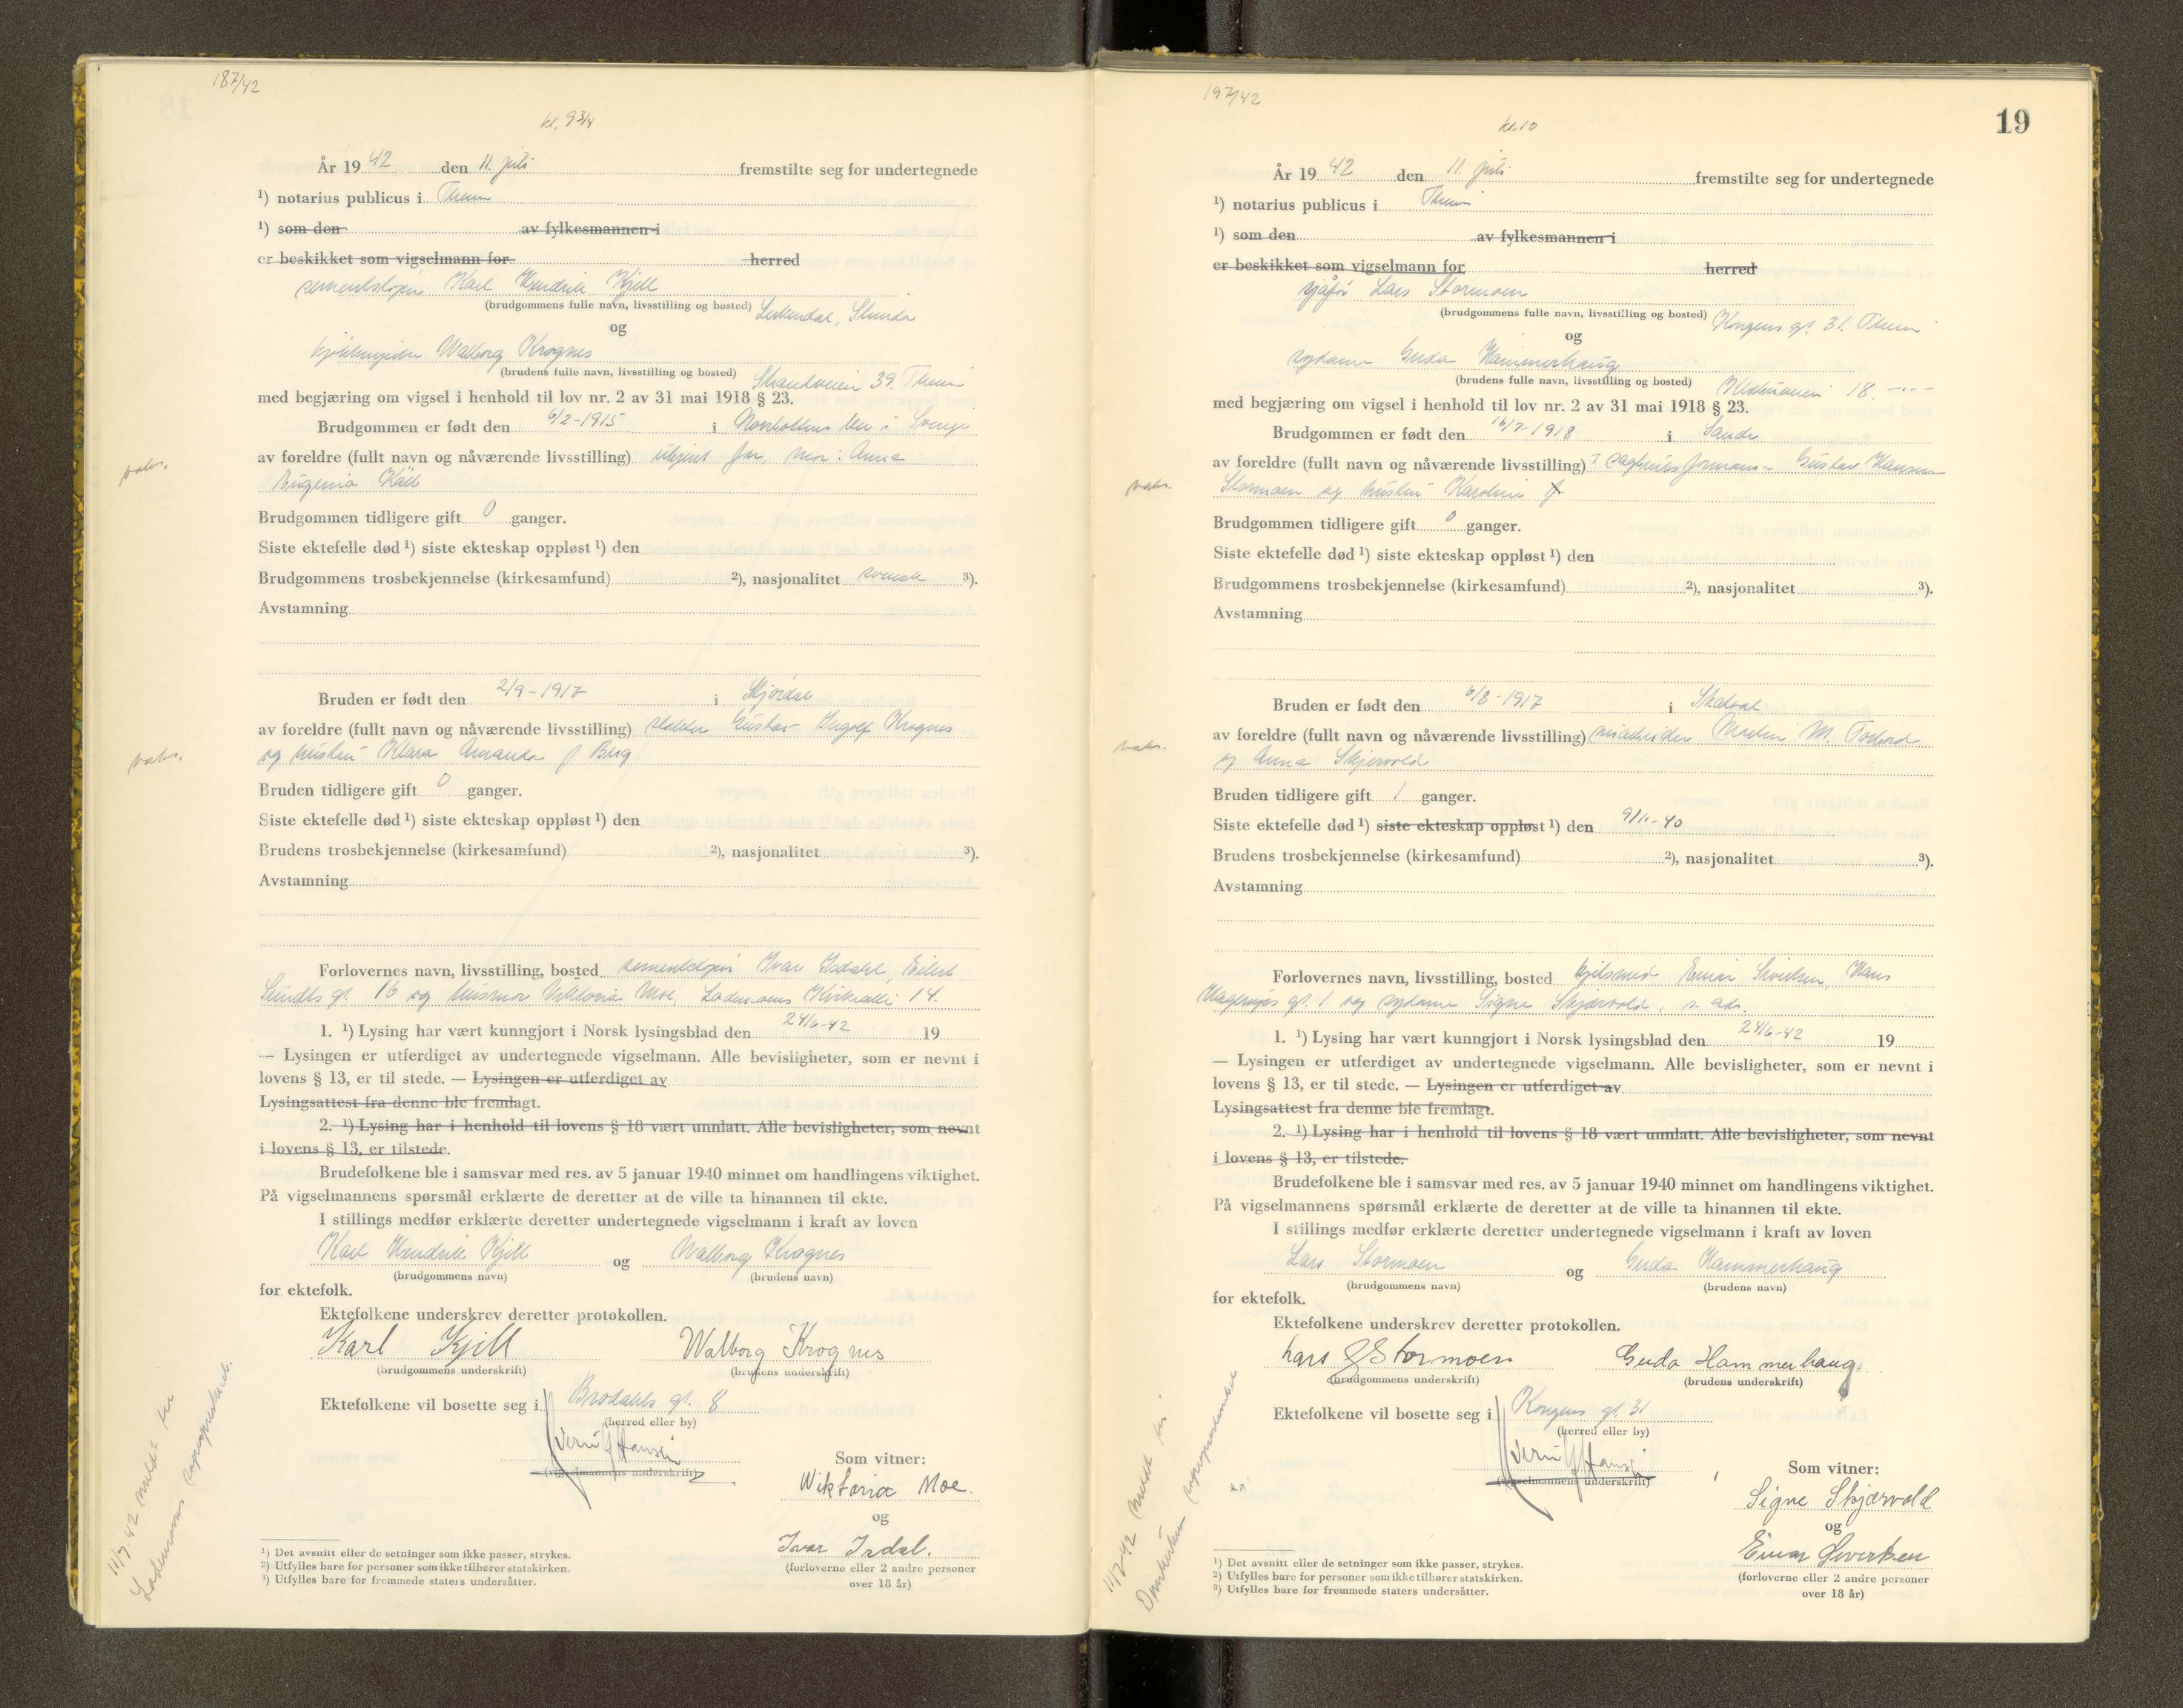 187/42
kl. 9 3/4
År 19 42 den 11. juli fremstilte seg for undertegnede
¹) notarius publicus i Thrm
¹) som den av fylkesmannen i
er beskikket som vigselmann for herred
Karl Hendrik Kjell
(brudgommens fulle navn, livsstilling og bosted)
og
Walborg Krognes
(brudens fulle navn, livsstilling og bosted) Strandveien 39.
med begjæring om vigsel i henhold til lov nr. 2 av 31 mai 1918 § 23.
Brudgommen er født den 6/2-1915 i Norrbottens len i Sverige
av foreldre (fullt navn og nåværende livsstilling) ukjent far, mor: Anna
Eugenia Käll
Brudgommen tidligere gift 0 ganger.
Siste ektefelle død ¹) siste ekteskap oppløst ¹) den
Brudgommens trosbekjennelse (kirkesamfund) ²), nasjonalitet svensk ³).
Avstamning
Bruden er født den 2/9-1917 i Stjørdal
av foreldre (fullt navn og nåværende livsstilling) Gustav Ingolf Krognes
og hustru Klara Amanda f Berg
Bruden tidligere gift 0 ganger.
Siste ektefelle død ¹) siste ekteskap oppløst ¹) den
Brudens trosbekjennelse (kirkesamfund) ²), nasjonalitet ³).
Avstamning
Forlovernes navn, livsstilling, bosted Ivar Isdahl, Eilert
Sundts gt. 16 og husmor Viktoria Moe, Lademoens Kirkealle 14.
1. ¹) Lysing har vært kunngjort i Norsk lysingsblad den 24/6-42 19
— Lysingen er utferdiget av undertegnede vigselmann. Alle bevisligheter, som er nevnt i
lovens § 13, er til stede. — Lysingen er utferdiget av
Lysingsattest fra denne ble fremlagt.
2. ¹) Lysing har i henhold til lovens § 18 vært unnlatt. Alle bevisligheter, som nevnt
i lovens § 13, er tilstede.
Brudefolkene ble i samsvar med res. av 5 januar 1940 minnet om handlingens viktighet.
På vigselmannens spørsmål erklærte de deretter at de ville ta hinannen til ekte.
I stillings medfør erklærte deretter undertegnede vigselmann i kraft av loven
Karl Hendrik Kjell og Walborg Krognes
(brudgommens navn) (brudens navn)
for ektefolk.
Ektefolkene underskrev deretter protokollen.
Karl Kjell Walborg Krognes
(brudgommens underskrift) (brudens underskrift)
Ektefolkene vil bosette seg i Brodahls gt. 8
(herred eller by)
(vigselmannens underskrift)
Som vitner:
Wiktoria Moe.
og
Ivar Isdal.
(forloverne eller 2 andre personer
over 18 år)
¹) Det avsnitt eller de setninger som ikke passer, strykes.
²) Utfylles bare for personer som ikke tilhører statskirken.
³) Utfylles bare for fremmede staters undersåtter.
vaks.
vaks.
11/7-42 meldt til
Lademoens sogneprestemb.
197/42
kl. 10
19
År 19 42 den 11. juli fremstilte seg for undertegnede
¹) notarius publicus i Thrm
¹) som den av fylkesmannen i
er beskikket som vigselmann for herred
sjåfør Lars Stormoen
(brudgommens fulle navn, livsstilling og bosted) Kongens gt. 31.
og
sydame Gerda Hammerhaug
(brudens fulle navn, livsstilling og bosted) 18.
med begjæring om vigsel i henhold til lov nr. 2 av 31 mai 1918 § 23.
Brudgommen er født den 1918 i
av foreldre (fullt navn og nåværende livsstilling) Gustav Hansen
Stormoen og hustru Karoline f
Brudgommen tidligere gift 0 ganger.
Siste ektefelle død ¹) siste ekteskap oppløst ¹) den
Brudgommens trosbekjennelse (kirkesamfund) ²), nasjonalitet ³).
Avstamning
Bruden er født den 6/8-1917 i Skatval
av foreldre (fullt navn og nåværende livsstilling) M. Forbord
og Anna Skjervold
Bruden tidligere gift 1 ganger.
Siste ektefelle død ¹) siste ekteskap oppløst ¹) den 40
Brudens trosbekjennelse (kirkesamfund) ²), nasjonalitet ³).
Avstamning
Forlovernes navn, livsstilling, bosted Einar Sivertsen, Hans
Hagerups gt. 1 og sydame Signe Skjærvold, s. adr.
1. ¹) Lysing har vært kunngjort i Norsk lysingsblad den 24/6-42 19
— Lysingen er utferdiget av undertegnede vigselmann. Alle bevisligheter, som er nevnt i
lovens § 13, er til stede. — Lysingen er utferdiget av
Lysingsattest fra denne ble fremlagt.
2. ¹) Lysing har i henhold til lovens § 18 vært unnlatt. Alle bevisligheter, som nevnt
i lovens § 13, er tilstede.
Brudefolkene ble i samsvar med res. av 5 januar 1940 minnet om handlingens viktighet.
På vigselmannens spørsmål erklærte de deretter at de ville ta hinannen til ekte.
I stillings medfør erklærte deretter undertegnede vigselmann i kraft av loven
Lars Stormoen og Gerda Hammerhaug
(brudgommens navn) (brudens navn)
for ektefolk.
Ektefolkene underskrev deretter protokollen.
Lars G Stormoen Gerda Hammerhaug.
(brudgommens underskrift) (brudens underskrift)
Ektefolkene vil bosette seg i Kongens gt 31
(herred eller by)
(vigselmannens underskrift)
Som vitner:
Signe Skjærvold
og
Einar Sivertsen
(forloverne eller 2 andre personer
over 18 år)
¹) Det avsnitt eller de setninger som ikke passer, strykes.
²) Utfylles bare for personer som ikke tilhører statskirken.
³) Utfylles bare for fremmede staters undersåtter.
vaks.
vaks.
11/7-42 meldt til
Domkirkens sogneprestembet